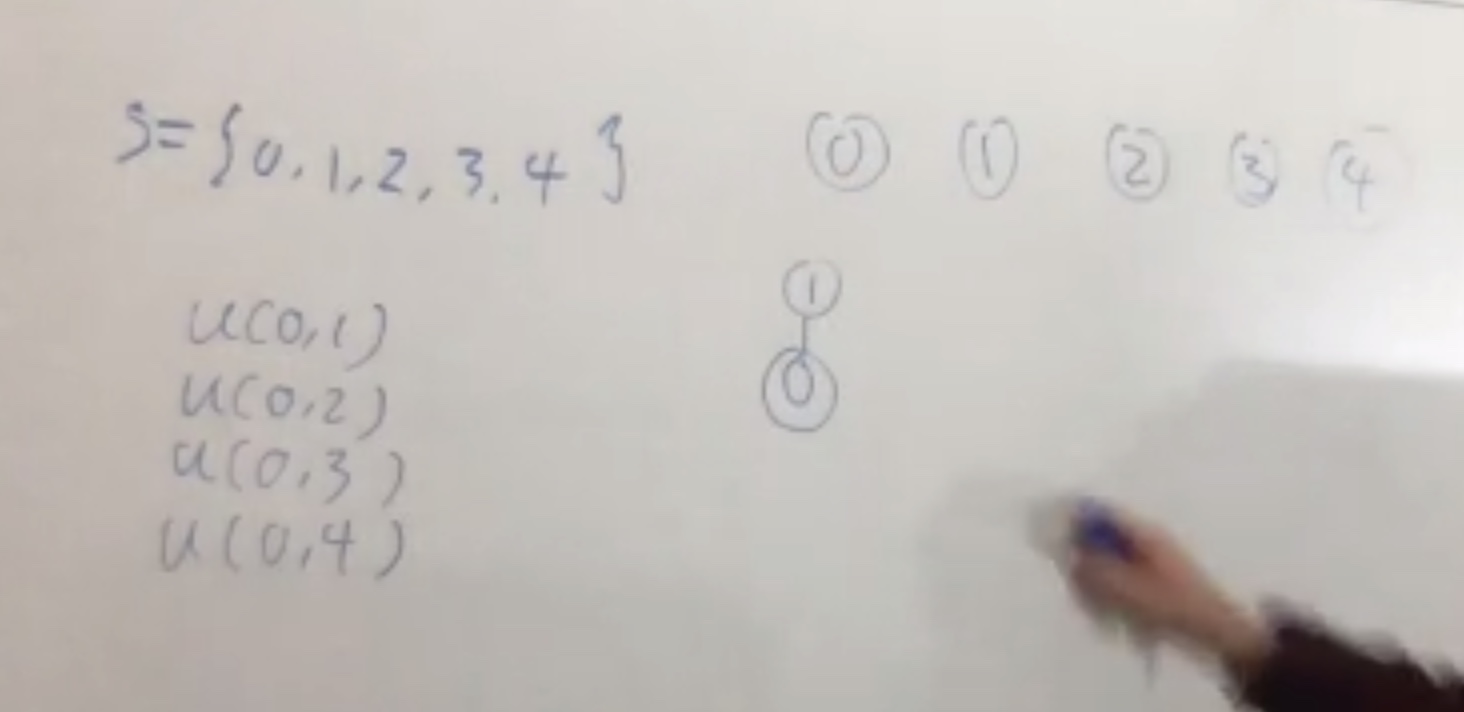 S={0,1,2,3,4}
0 1 2 3 4
u(0,1)
u(0,2)
u(0,3)
u(0,4)
1
0